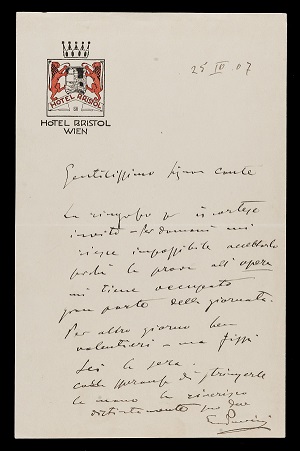 HOTEL BRISTOL
HOTEL BRISTOL
WIEN
07
Gentilissimo Signor Conte
La ringrazio per il cortese
invito - Per domani mi
riesce impossibile accettarlo
perchè la prova all'opera
mi tiene occupato
gran parte della giornata.
Per altro giorno ben
volentieri
la sera
speranza di stringerle
la mano la riverisco
distintamente suo dev
GPuccini